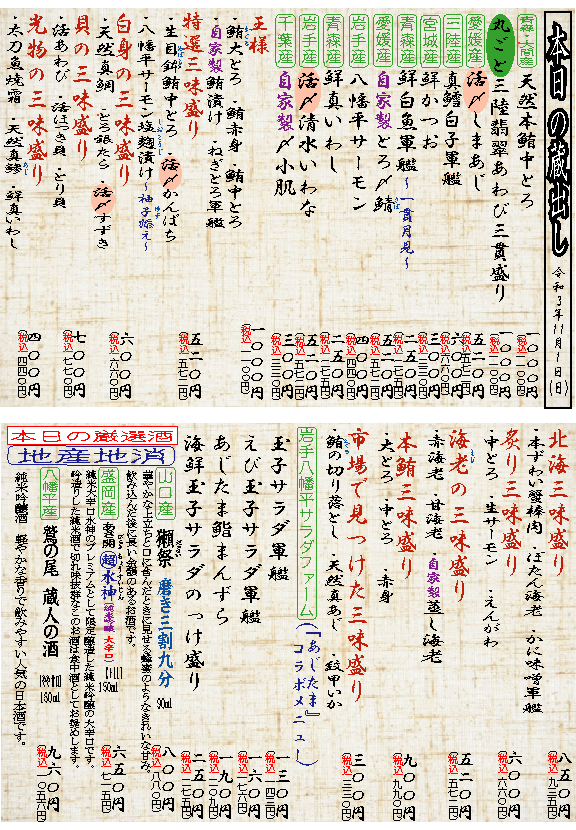 本日の蔵出し
令和3年11月1日(日)
青森・大間産 天然本鮪中とろ 一〇〇〇円 (税込一一〇〇円)
丸ごと 三陸翡翠あわび三貫盛り 一〇〇〇円 (税込一一〇〇円)
愛媛産 活〆しまあじ 五二〇円 (税込五七二円)
三陸産 真鱈白子軍艦 六〇〇円 (税込六六〇円)
宮城産 鮮かつお 三〇〇円 (税込三三〇円)
青森産 鮮白魚軍艦~一貫月見~ 二五〇円 (税込二七五円)
愛媛産 自家製どろ〆鯖 五二〇円 (税込五七二円)
八幡平サーモン 四〇〇円 (税込四四〇円)
青森産 鮮真いわし 二五〇円 (税込二七五円)
岩手産 活〆清水いわな 五二〇円 (税込五七二円)
千葉産 自家製〆小肌 三〇〇円 (税込三三〇円)
王様 一〇〇〇円 (税込一一〇〇円)
・鮪大とろ ・鮪赤身 ・鮪中とろ
・自家製鮪漬け ・ねぎとろ軍艦
特選三味盛り 五二〇円 (税込五七二円)
・生目鉢鮪中とろ ・活〆かんぱち
・八幡平サーモン塩麹漬け~柚子添え~
白身の三味盛り 六〇〇円 (税込六六〇円)
・天然真鯛 ・どろ銀たら ・活〆すずき
貝の三味盛り 七〇〇円 (税込七七〇円)
・活あわび ・活ほっき貝 ・とり貝
光物の三味盛り 四〇〇円 (税込四四〇円)
・太刀魚焼霜 ・天然真鯵 ・鮮真いわし
北海三味盛り 八五〇円 (税込九三五円)
・本ずわい蟹棒肉 ・ぼたん海老 ・かに味噌軍艦
炙り三味盛り 六〇〇円 (税込六六〇円)
・中とろ ・生サーモン ・えんがわ
海老の三味盛り 五二〇円 (税込五七二円)
・赤海老 ・甘海老 ・自家製蒸し海老
本鮪三味盛り 九〇〇円 (税込九九〇円)
・大とろ ・中とろ ・赤身
市場で見つけた三味盛り 三〇〇円 (税込三三〇円)
・鮪の切り落とし ・天然真あじ ・紋甲いか
岩手八幡平サラダファーム(『あじたま』コラボメニュー)
玉子サラダ軍艦 一三〇円 (税込一四三円)
えび玉子サラダ軍艦 一六〇円 (税込一七六円)
あじたま鮨まんずら 一九〇円 (税込二〇九円)
海鮮玉子サラダのっけ盛り 二五〇円 (税込二七五円)
本日の厳選酒
地産地消
山口産 獺祭 磨き三割九分 90ml 八〇〇円 (税込八八〇円)
華やかな上立ち香と口に含んだときに見せる蜂蜜のようなきれいな甘み。
飲み込んだ後に長い余韻のあるお酒です。
盛岡産 あさ開 超水神 (純米吟醸 大辛口) 【中口】 150ml 六五〇円 (税込七一五円)
純米大辛口水神のプレミアムとして限定醸造した純米吟醸の大辛口です。
吟造りした純米酒で切れ味抜群なこのお酒は食中酒としてお薦めします。
八幡平産 鷲の尾 蔵人の酒 180ml 九六〇円 (税込一〇五六円)
純米吟醸酒 軽やかな香りで飲みやすい人気の日本酒です。